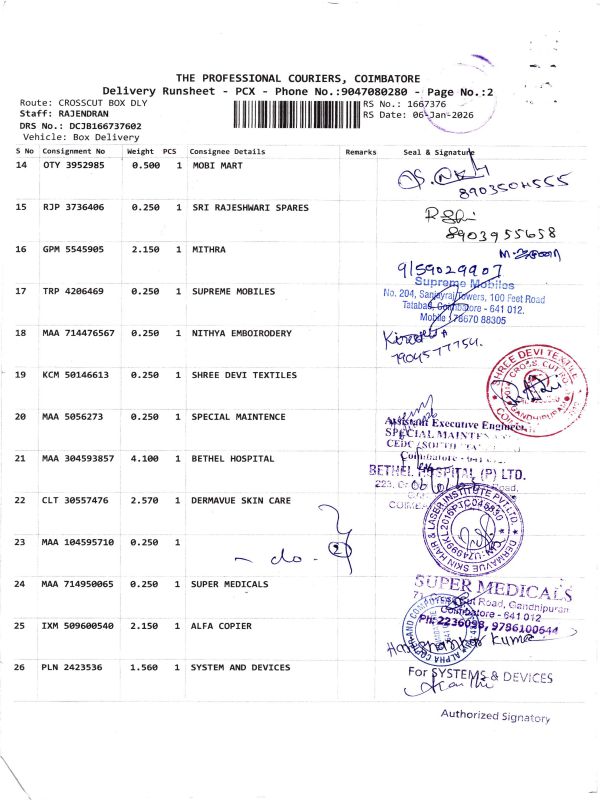 THE PROFESSIONAL COURIERS, COIMBATORE
Delivery Runsheet - PCX - Phone No.:9047080280 - Page No.:2
Route: CROSSCUT BOX DLY
RS No.: 1667376
Staff: RAJENDRAN
RS Date: 06-Jan-2026
DRS No.: DCJB166737602
Vehicle: Box Delivery
S No Consignment No Weight PCS Consignee Details Remarks Seal & Signature
14 OTY 3952985 0.500 1 MOBI MART
8903504555
15 RJP 3736406 0.250 1 SRI RAJESHWARI SPARES
8903955658
16 GPM 5545905 2.150 1 MITHRA
9159029907
17 TRP 4206469 0.250 1 SUPREME MOBILES
Supreme Mobiles
No. 204, Sanjayraj Towers, 100 Feet Road
Tatabad, Coimbatore - 641 012.
Mobile : 78670 88305
18 MAA 714476567 0.250 1 NITHYA EMBOIRODERY
7904577754.
19 KCM 50146613 0.250 1 SHREE DEVI TEXTILES
SHREE DEVI TEXTILE
CROSS CUT RO
GANDHIPURAM
20 MAA 5056273 0.250 1 SPECIAL MAINTENCE
Assistant Executive Engineer
SPECIAL MAINTEN
CEDC/SOUTH
Coimbatore - 641
21 MAA 304593857 4.100 1 BETHEL HOSPITAL
BETHEL HOSPITAL (P) LTD.
Road,
22 CLT 30557476 2.570 1 DERMAVUE SKIN CARE
DERMAVUE SKIN HAIR & LASER INSTITUTE PVT.LTD.
23 MAA 104595710 0.250 1
- do -
2
24 MAA 714950065 0.250 1 SUPER MEDICALS
SUPER MEDICALS
Cut Road, Gandhipuram
Coimbatore - 641 012
Ph: 2236098, 9786100644
25 IXM 509600540 2.150 1 ALFA COPIER
26 PLN 2423536 1.560 1 SYSTEM AND DEVICES
For SYSTEMS & DEVICES
Authorized Signatory